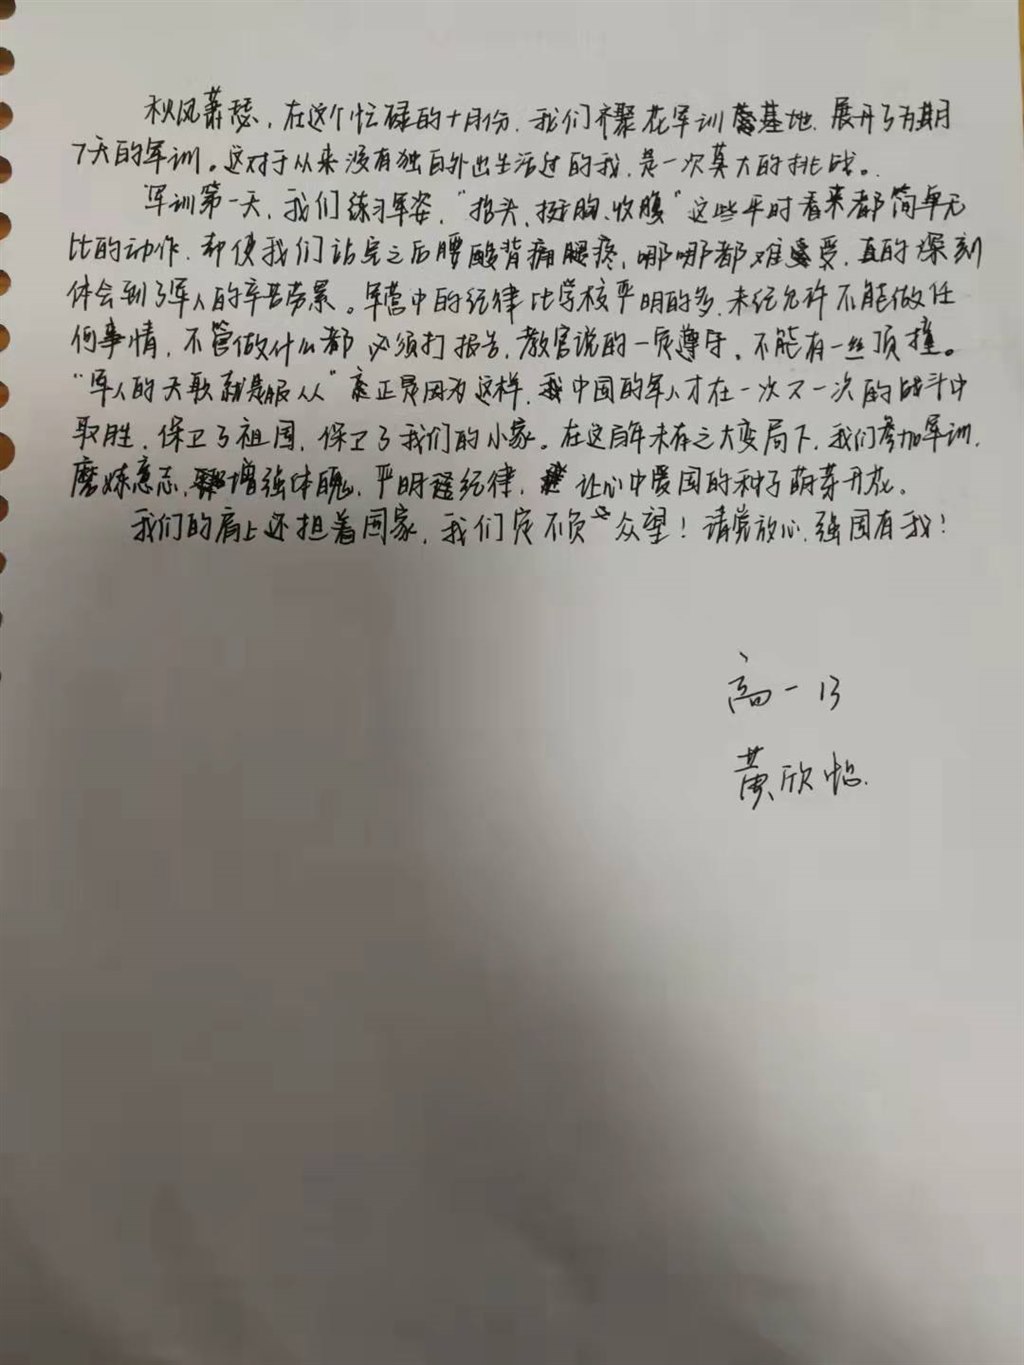 秋风萧瑟，在这个忙碌的十月份，我们齐聚在军训基地，展开了为期
7天的军训。这对于从来没有独自外出生活过的我，是一次莫大的挑战。
军训第一天，我们练习军姿，“抬头、挺胸、收腹”这些平时看来都简单无
比的动作，却使我们站完之后腰酸背痛腿疼，哪哪都难受，真的深刻
体会到了军人的辛苦劳累。军营中的纪律比学校严明的多，未经允许不能做任
何事情，不管做什么都必须打报告，教官说的一定遵守，不能有一丝顶撞。
“军人的天职就是服从”正是因为这样，我中国的军人才在一次又一次的战斗中
取胜，保卫了祖国，保卫了我们的小家。在这百年未有之大变局下，我们参加军训，
磨炼意志，增强体魄，严明纪律，让心中爱国的种子萌芽开花。
我们的肩上还担着国家，我们定不负众望！请党放心，强国有我！
高一13
黄欣怡